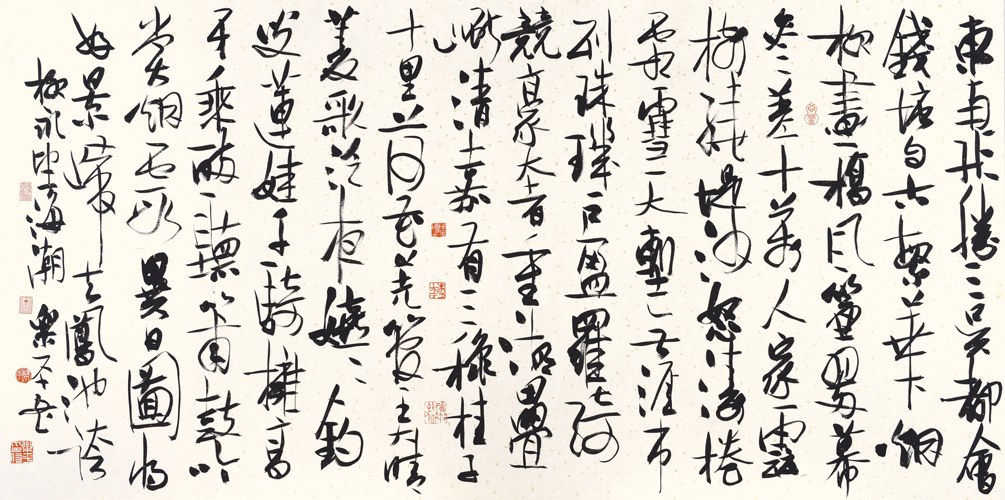 東南形勝三吳都會
錢塘自古繁華烟
柳畫橋風簾翠幕
參差十萬人家雲
樹繞堤沙怒濤捲
霜雪天塹無涯市
列珠璣戶盈羅綺
競豪奢重湖疊
巘清嘉有三秋桂子
十里荷花羌管弄晴
菱歌泛夜嬉嬉釣
叟蓮娃千騎擁高
牙乘醉聽簫鼓吟
賞烟霞異日圖將
好景歸去鳳池誇
柳永望海潮